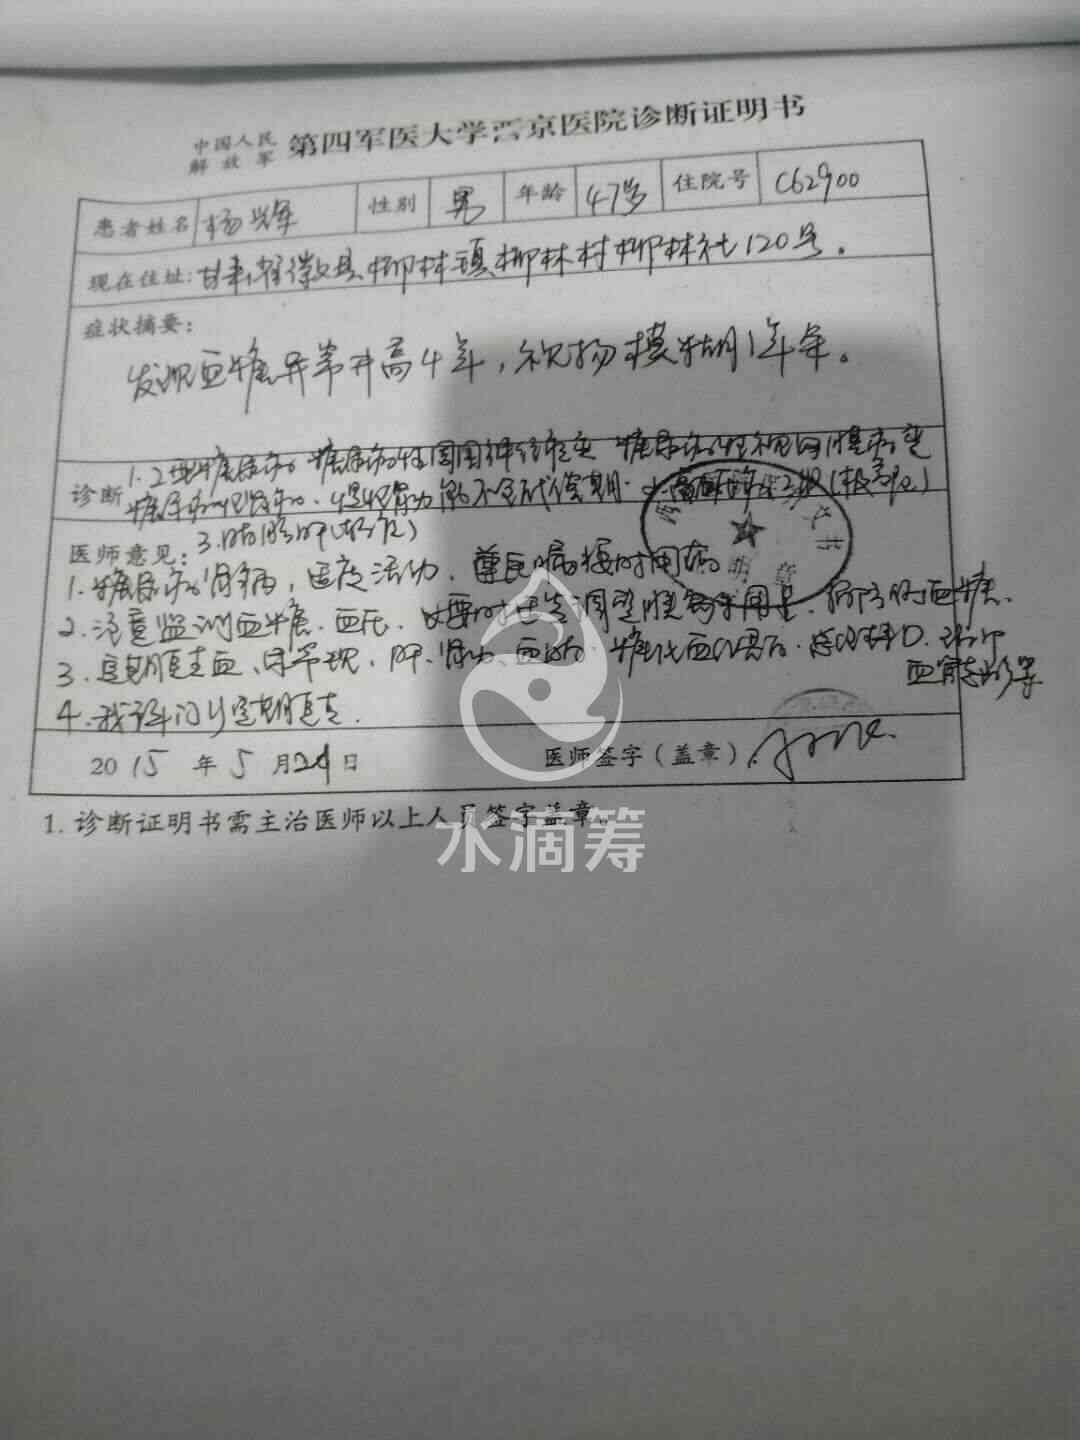 中国人民
解放军
第四军医大学西京医院诊断证明书
患者姓名 杨辉 性别 男 年龄 47岁 住院号 C62900
现在住址: 甘肃省徽县柳林镇柳林村柳林社120号。
症状摘要:
发现血糖异常升高4年,视物模糊1年余。
诊断
1.2型糖尿病 糖尿病性周围神经病变 糖尿病性视网膜病变
糖尿病肾病 慢性肾功能不全代偿期 2.高血压病 级(极高危)
3.脂肪肝(轻度)
医师意见:
1.糖尿病肾病,适度活动,遵医嘱按时用药
2.注意监测血糖、血压,必要时 调整 用量,预防低血糖。
3.定期复查血、尿常规,肝、肾功、血脂、糖化血红蛋白、
4.我科门诊定期复查。
2015年5月24日
医师签字(盖章)
明 章
1.诊断证明书需主治医师以上人员签字盖章。
水滴筹